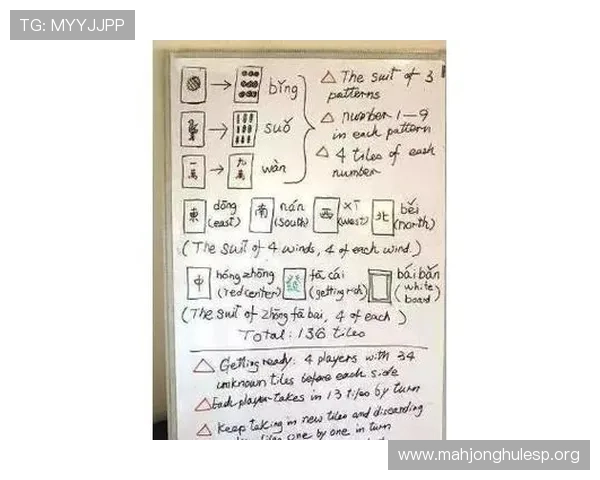 TG: MYYJJPP
bǐng
suǒ
一萬
九萬
wàn
△ The suit of 3
patterns
△ number 1—9
in each pattern
△ 4 tiles of each
number
東 dōng (east) 南 nán (south) 西 xī (west) 北 běi (north)
(The suit of 4 winds, 4 of each wind.)
中 hóng zhōng (red center) 發 fā cái (getting rich) bái bǎn (white board)
(The suit of zhōng fā bái, 4 of each)
Total: 136 tiles
△ Getting ready: 4 players with 34
unknown tiles before each side
△ Each player takes in 13 tiles by turn
△ Keep taking in new tiles and discarding
tiles one by one in turn
www.mahjonghulesp.org